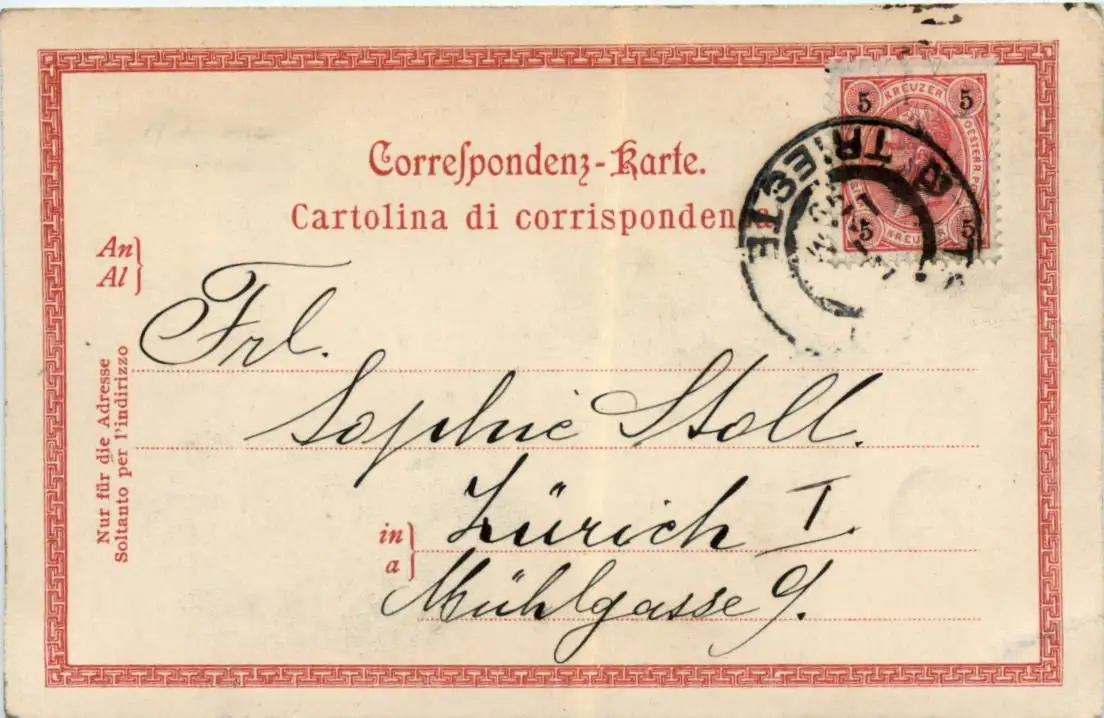 5 KREUZER 5
Correſpondenz-Karte.
TRIESTE
Cartolina di corrisponden
5 KREUZER 5
An
Al
Frl.
Sophie Stoll.
Nur für die Adresse
Soltanto per l'indirizzo
in Zürich I.
a
Mühlgasse 9.